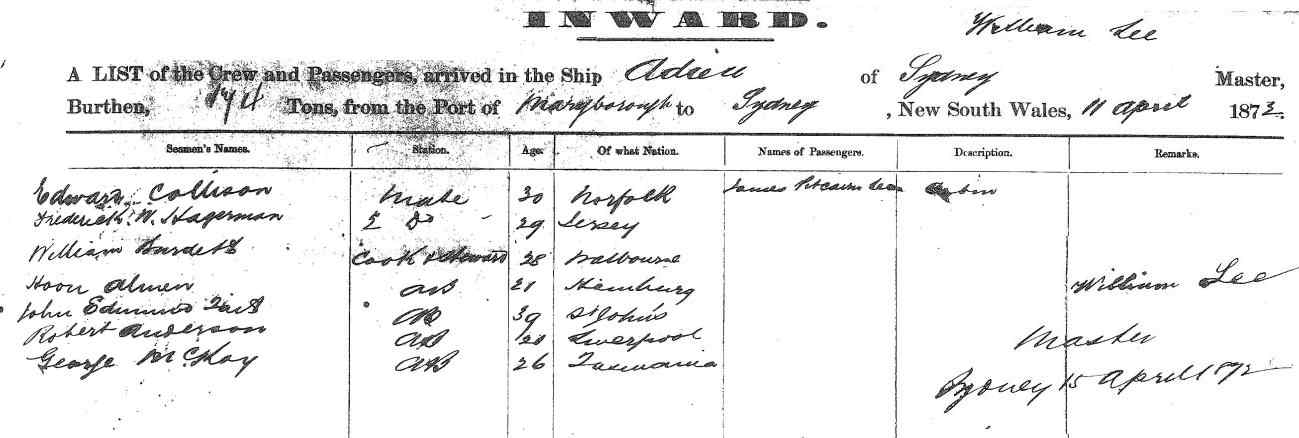 INWARD.
William Lee
A LIST of the Crew and Passengers, arrived in the Ship of Sydney Master,
Burthen, Tons, from the Port of Maryborough to Sydney, New South Wales, 11 April 187
Seamen's Names. Station. Age. Of what Nation. Names of Passengers. Description. Remarks.
Edward Collison Mate 30 Norfolk James Pitcairn Cabin
Frederick W. Hagerman 2 Do 29 Jersey
William Burdett Cook & Steward 28 Malbourne
Almen AB 21 Hamburg William Lee
John AB 39 St John's
Robert Anderson AB Liverpool Master
George McKay AB 26 Tasmania
Sydney 15 April 187